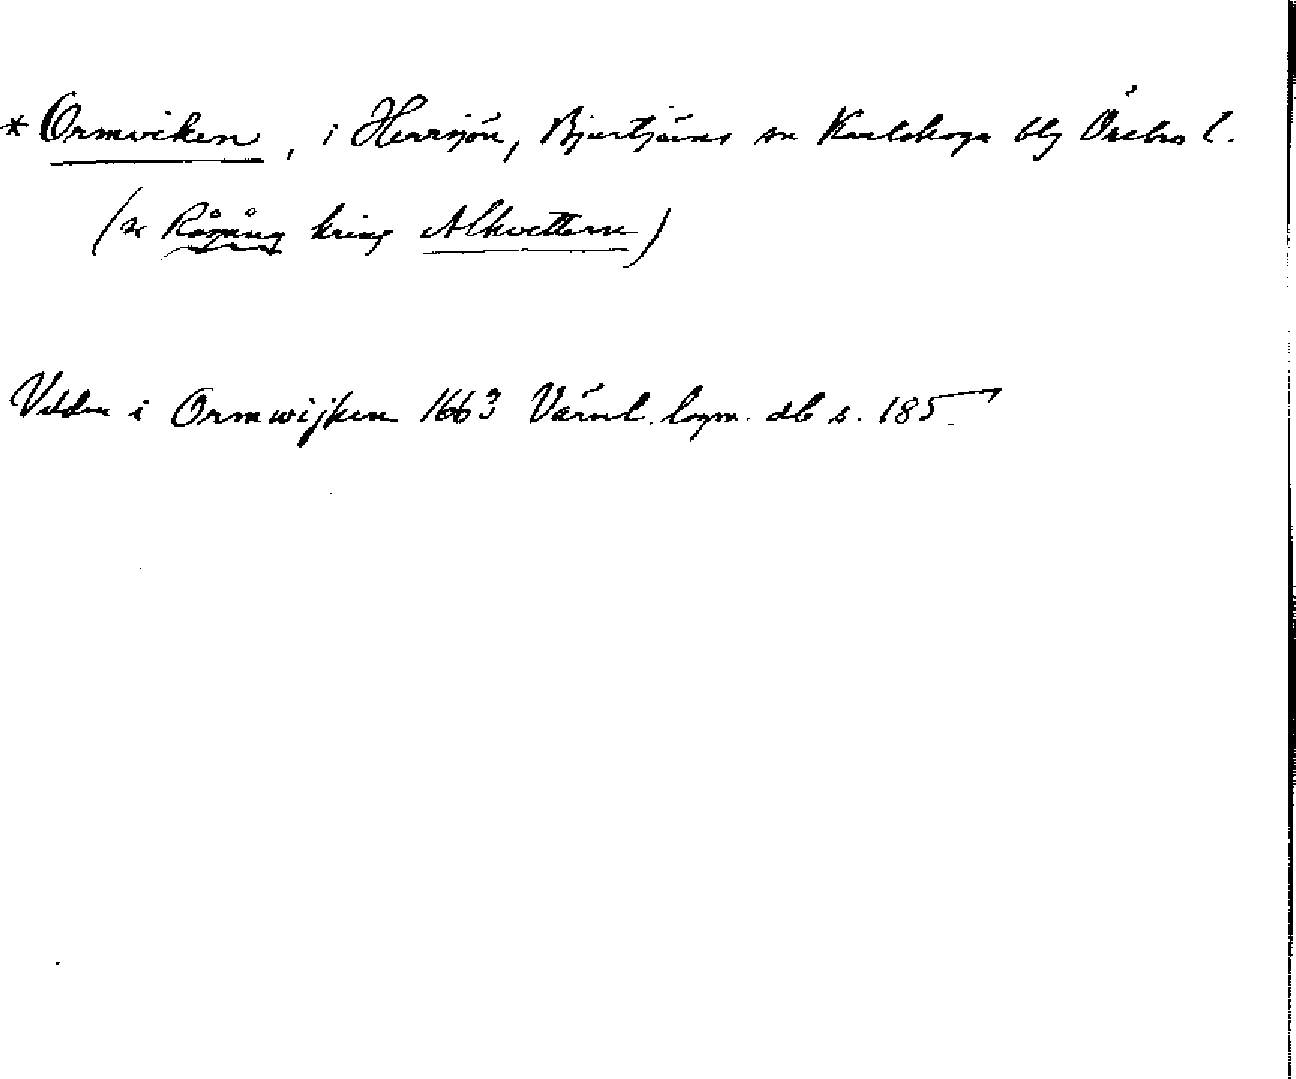 *Ormviken, i Herrsjön, Bjurtjärns sn Karlskoga blg Örebro l.
(se Rågång kring Alkvettern)
Udden i Ormwijken 1663 Värml. lagm. db s. 185